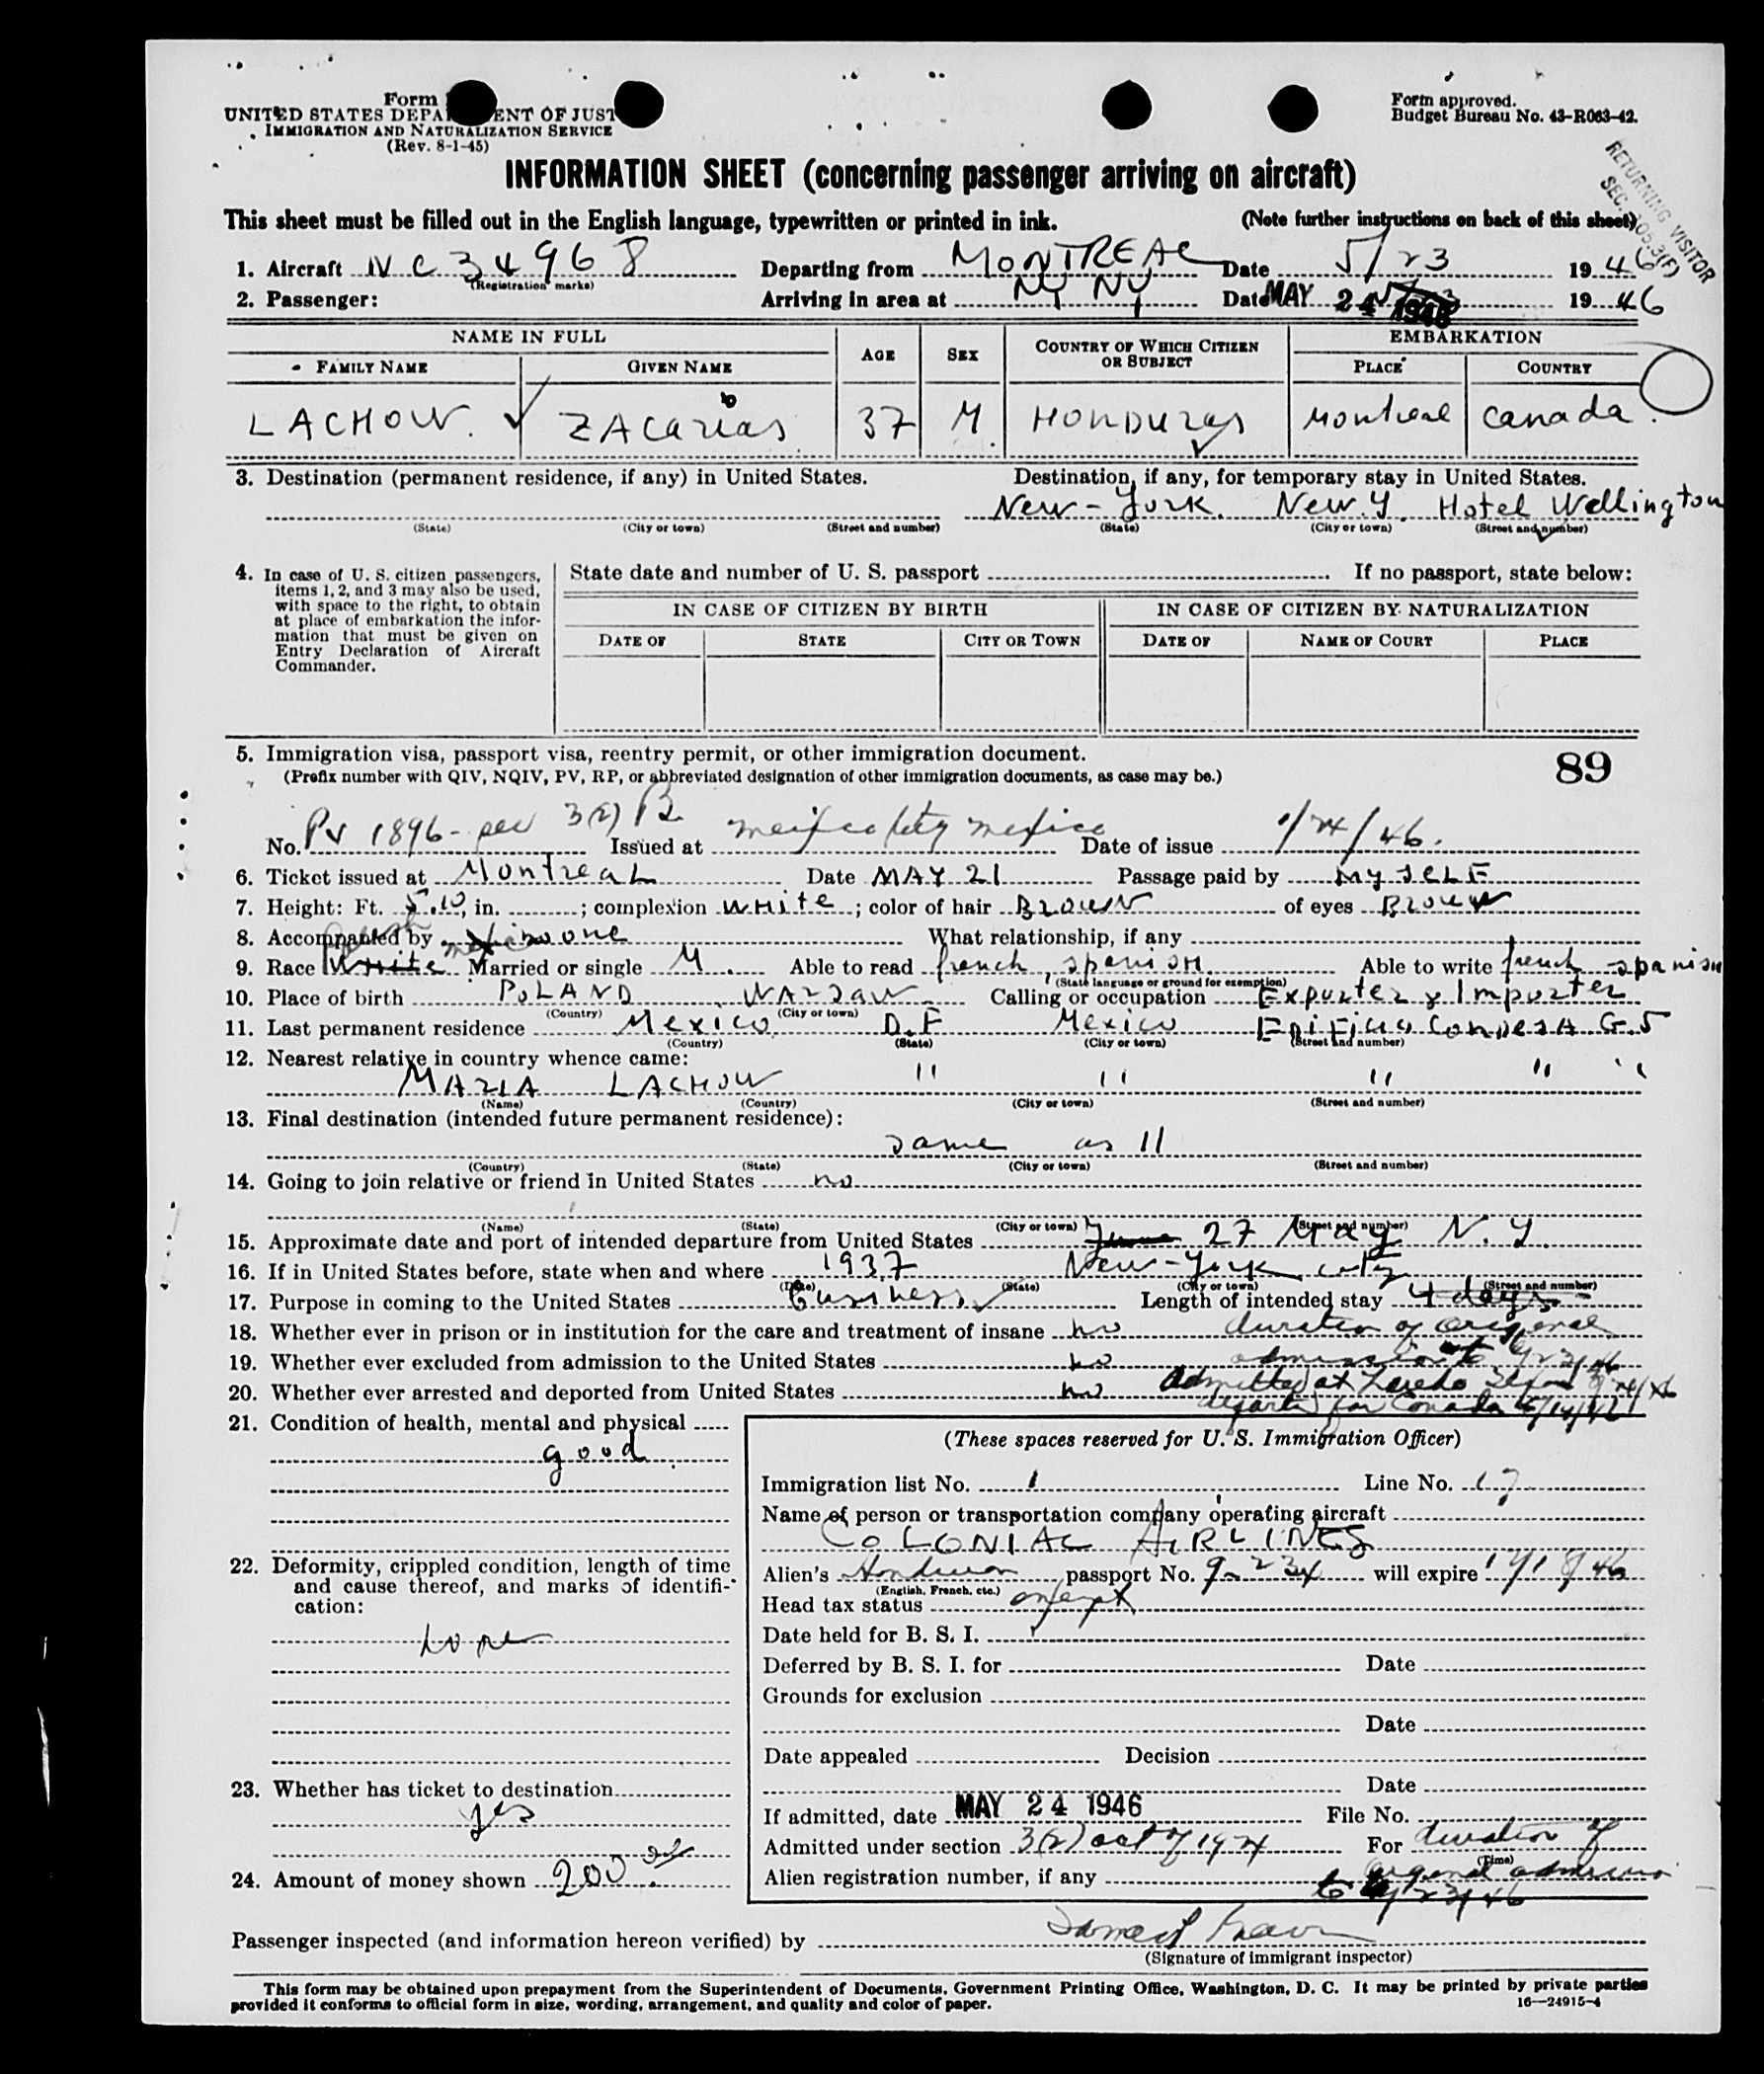 Form
UNITED STATES DEPA ENT OF JUST
IMMIGRATION AND NATURALIZATION SERVICE
(Rev. 8-1-45)
Form approved.
Budget Bureau No. 43-R063-42.
RETURNING VISITOR
SEC.
INFORMATION SHEET (concerning passenger arriving on aircraft)
This sheet must be filled out in the English language, typewritten or printed in ink. (Note further instructions on back of this sheet)
1. Aircraft NC 34968 Departing from MONTREAL Date 5/23 1946
(Registration marks)
2. Passenger: Arriving in area at NY NY Date MAY 24 1946 1946
NAME IN FULL AGE SEX COUNTRY OF WHICH CITIZEN OR SUBJECT EMBARKATION
FAMILY NAME GIVEN NAME PLACE COUNTRY
LACHOW. ZACarias 37 M. HONDURas Montreal Canada.
3. Destination (permanent residence, if any) in United States. Destination, if any, for temporary stay in United States.
New-York. New.Y. Hotel Wellington
(State) (City or town) (Street and number) (State) (City or town) (Street and number)
4. In case of U. S. citizen passengers, items 1, 2, and 3 may also be used, with space to the right, to obtain at place of embarkation the information that must be given on Entry Declaration of Aircraft Commander.
State date and number of U. S. passport If no passport, state below:
IN CASE OF CITIZEN BY BIRTH IN CASE OF CITIZEN BY NATURALIZATION
DATE OF STATE CITY OR TOWN DATE OF NAME OF COURT PLACE
5. Immigration visa, passport visa, reentry permit, or other immigration document.
(Prefix number with QIV, NQIV, PV, RP, or abbreviated designation of other immigration documents, as case may be.)
89
No. PV 1896- 3(2) Issued at Mexico City Mexico Date of issue 1/24/46.
6. Ticket issued at Montreal Date MAY 21 Passage paid by MySELF
7. Height: Ft. 5.10, in. ; complexion WHite ; color of hair BROWN of eyes BROWN
8. Accompanied by none What relationship, if any
9. Race White Married or single M. Able to read french, spanish Able to write french spanish
(State language or ground for exemption)
10. Place of birth POLAND WARSAW Calling or occupation Exporter y Importer
(Country) (City or town)
11. Last permanent residence Mexico D.F Mexico Edificio Condesa G.5
(Country) (State) (City or town) (Street and number)
12. Nearest relative in country whence came:
MARIA LACHOW " " " " "
(Name) (Country) (City or town) (Street and number)
13. Final destination (intended future permanent residence):
same as 11
(Country) (State) (City or town) (Street and number)
14. Going to join relative or friend in United States no
(Name) (State) (City or town) (Street and number)
15. Approximate date and port of intended departure from United States June 27 May N.Y.
16. If in United States before, state when and where 1937 New-York city
(Date) (State) (City or town) (Street and number)
17. Purpose in coming to the United States Business Length of intended stay 4 days
18. Whether ever in prison or in institution for the care and treatment of insane no duration of original
19. Whether ever excluded from admission to the United States no admission to
20. Whether ever arrested and deported from United States no Admitted at Laredo
departed for Canada
21. Condition of health, mental and physical
good
(These spaces reserved for U. S. Immigration Officer)
Immigration list No. 1 Line No. 17
Name of person or transportation company operating aircraft
COLONIAL AIRLINES
22. Deformity, crippled condition, length of time and cause thereof, and marks of identification:
none
Alien's Honduran passport No. will expire
(English, French, etc.)
Head tax status exempt
Date held for B. S. I.
Deferred by B. S. I. for Date
Grounds for exclusion
Date
Date appealed Decision
Date
23. Whether has ticket to destination
yes
If admitted, date MAY 24 1946 File No.
Admitted under section 3(2) act of 1924 For duration of
(Time)
24. Amount of money shown 200.
Alien registration number, if any original admission
to
Passenger inspected (and information hereon verified) by
(Signature of immigrant inspector)
This form may be obtained upon prepayment from the Superintendent of Documents, Government Printing Office, Washington, D. C. It may be printed by private parties
provided it conforms to official form in size, wording, arrangement, and quality and color of paper.
16—24915-4